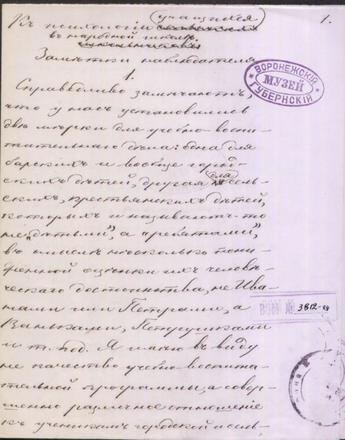 Къ психологіи учащихся
1.
въ народной школѣ.
Замѣтки наблюдателя
1.
Справедливо замѣчаютъ,
что у насъ установились
двѣ мѣрки для учебно-воспи-
тательнаго дѣла: одна для
барскихъ и вообще город-
скихъ дѣтей, другая для сель-
скихъ, крестьянскихъ дѣтей,
которыхъ и называютъ-то
не „дѣтьми“, а „ребятами“,
въ смыслѣ нѣсколько пони-
женной оцѣнки ихъ человѣ-
ческаго достоинства, не Ива-
нами или Петрами, а
Ваньками, Петрушками
и т. под. Я имѣю въ виду
не качество учебно-воспита-
тельной программы, а совер-
шенно различное отношеніе
къ ученикамъ городской и сель-
ВОРОНЕЖСКІЙ
МУЗЕЙ
ГУБЕРНСКІЙ
3812-